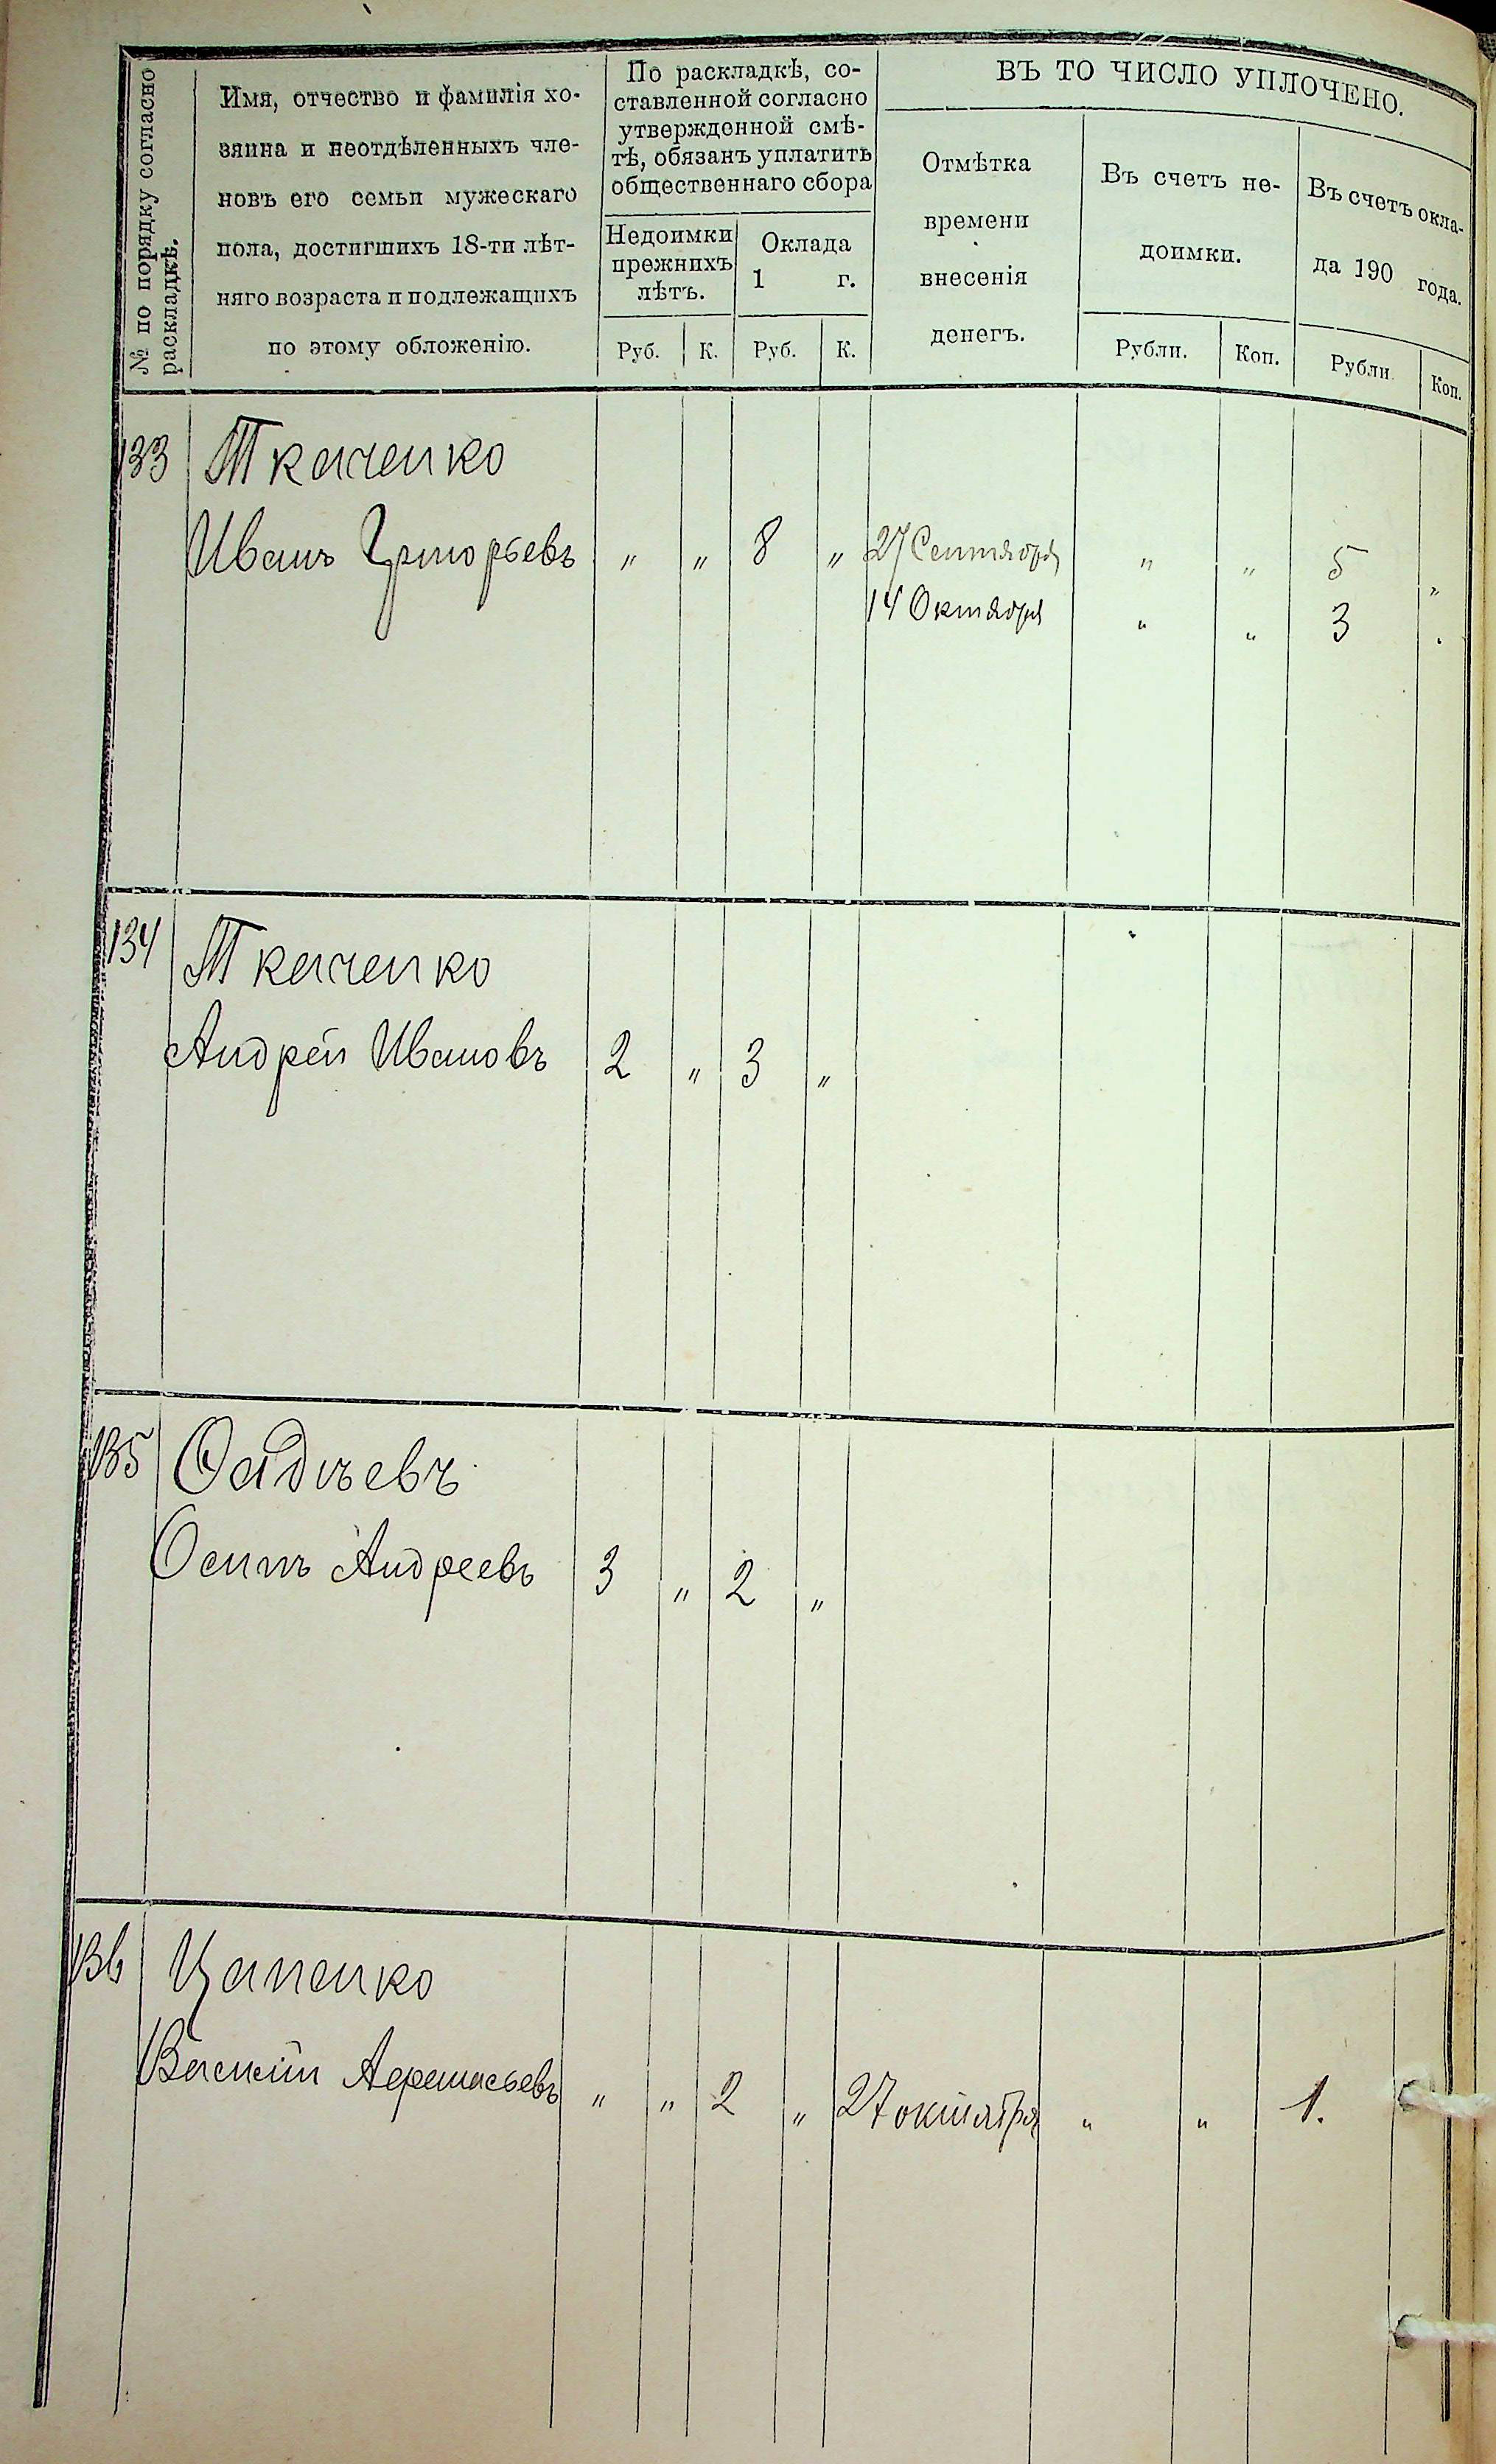 № по порядку согласно
раскладкѣ.
Имя, отчество и фамилія хо-
зяина и неотдѣленныхъ чле-
новъ его семьи мужескаго
пола, достигшихъ 18-ти лѣт-
няго возраста и подлежащихъ
по этому обложенію.
По раскладкѣ, со-
ставленной согласно
утвержденной смѣ-
тѣ, обязанъ уплатить
общественнаго сбора
Недоимки
прежнихъ
лѣтъ.
Оклада
1 г.
Руб. К. Руб. К.
ВЪ ТО ЧИСЛО УПЛОЧЕНО.
Отмѣтка
времени
внесенія
денегъ.
Въ счетъ не-
доимки.
Рубли. Коп.
Въ счетъ окла-
да 190 года.
Рубли. Коп.
133 Ткаченко
Иванъ Григорьевъ " " 8 " 27 Сентября " " 5 "
14 Октября " " 3 "
134 Ткаченко
Андрей Ивановъ 2 " 3 "
135
Осипъ Андреевъ 3 " 2 "
136 Цапенко
Василій Афанасьевъ " " 2 " 27 октября " " 1.